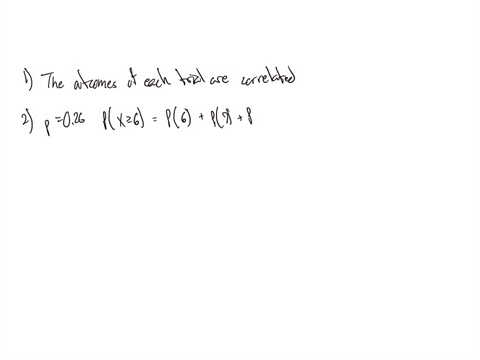 1) The outcomes of each trial are correlated
2) p = 0.26 P(X≥6) = P(6) + P(7) + P